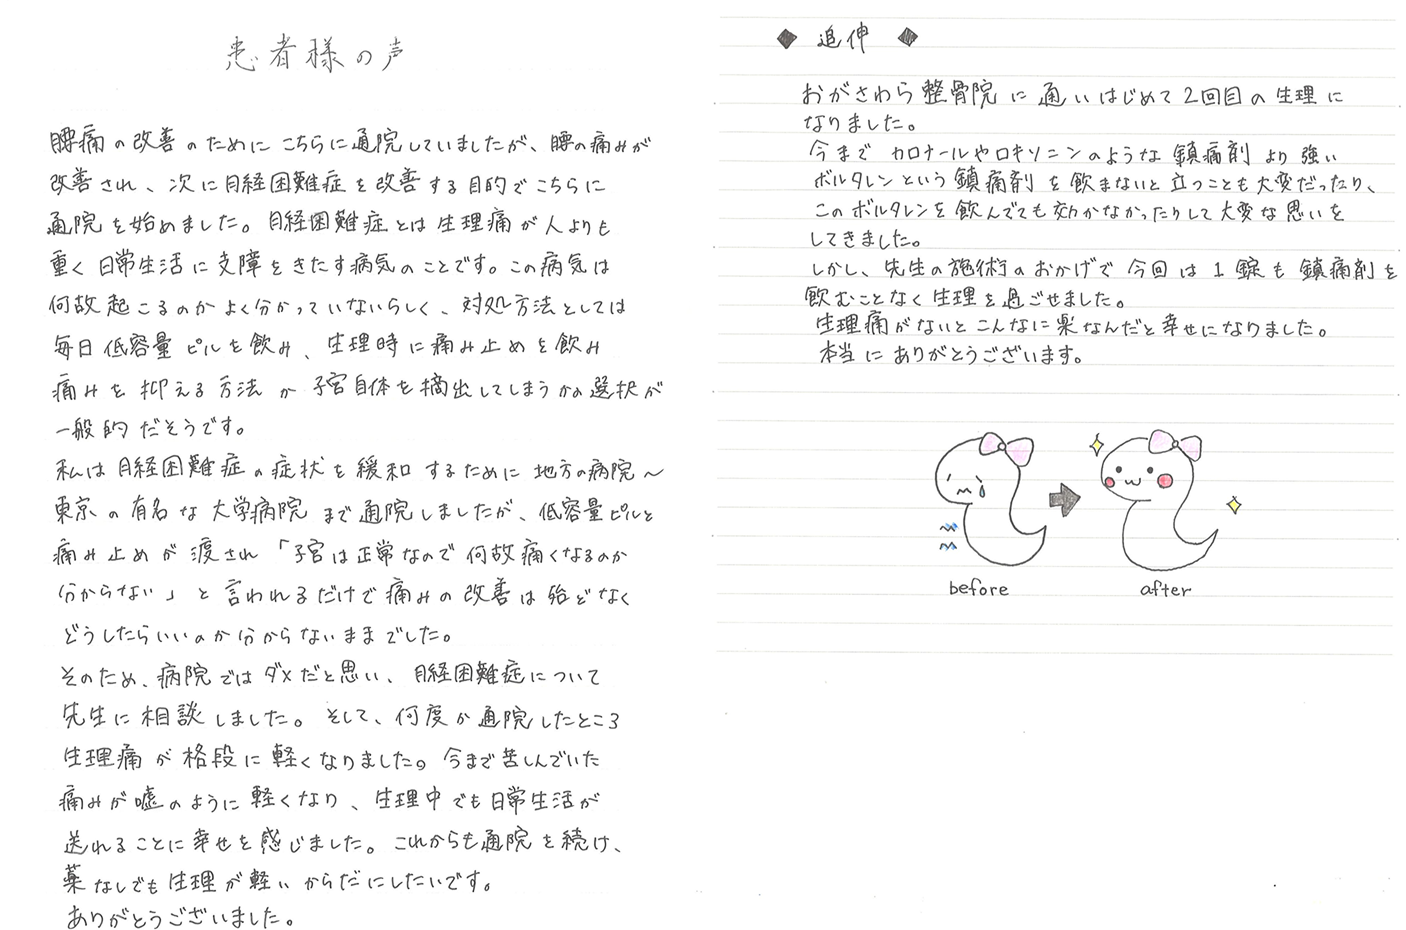 患者様の声
腰痛の改善のためにこちらに通院していましたが、腰の痛みが
改善され、次に月経困難症を改善する目的でこちらに
通院を始めました。月経困難症とは生理痛が人よりも
重く日常生活に支障をきたす病気のことです。この病気は
何故起こるのかよく分かっていないらしく、対処方法としては
毎日低容量ピルを飲み、生理時に痛み止めを飲み
痛みを抑える方法か子宮自体を摘出してしまうかの選択が
一般的だそうです。
私は月経困難症の症状を緩和するために地方の病院～
東京の有名な大学病院まで通院しましたが、低容量ピルと
痛み止めが渡され「子宮は正常なので何故痛くなるのか
分からない」と言われるだけで痛みの改善は殆どなく
どうしたらいいのか分からないままでした。
そのため、病院ではダメだと思い、月経困難症について
先生に相談しました。そして、何度か通院したところ
生理痛が格段に軽くなりました。今まで苦しんでいた
痛みが嘘のように軽くなり、生理中でも日常生活が
送れることに幸せを感じました。これからも通院を続け、
薬なしでも生理が軽いからだにしたいです。
ありがとうございました。
◆ 追伸 ◆
おがさわら整骨院に通いはじめて2回目の生理に
なりました。
今までカロナールやロキソニンのような鎮痛剤より強い
ボルタレンという鎮痛剤を飲まないと立つことも大変だったり、
このボルタレンを飲んでても効かなかったりして大変な思いを
してきました。
しかし、先生の施術のおかげで今回は1錠も鎮痛剤を
飲むことなく生理を過ごせました。
生理痛がないとこんなに楽なんだと幸せになりました。
本当にありがとうございます。
before
after